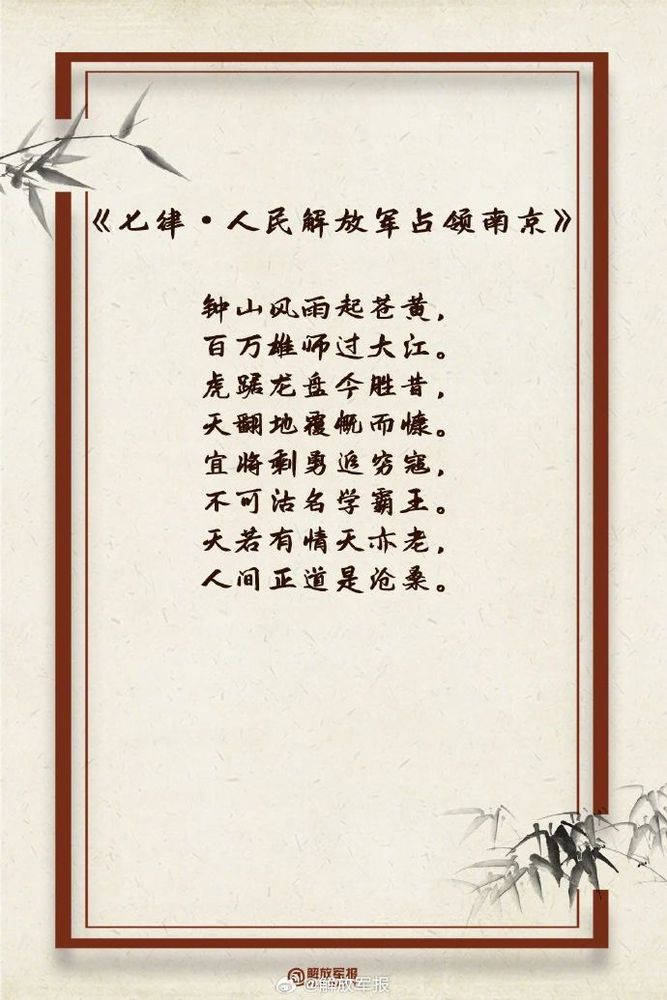 《七律·人民解放军占领南京》
钟山风雨起苍黄，
百万雄师过大江。
虎踞龙盘今胜昔，
天翻地覆慨而慷。
宜将剩勇追穷寇，
不可沽名学霸王。
天若有情天亦老，
人间正道是沧桑。
解放军报
@解放军报